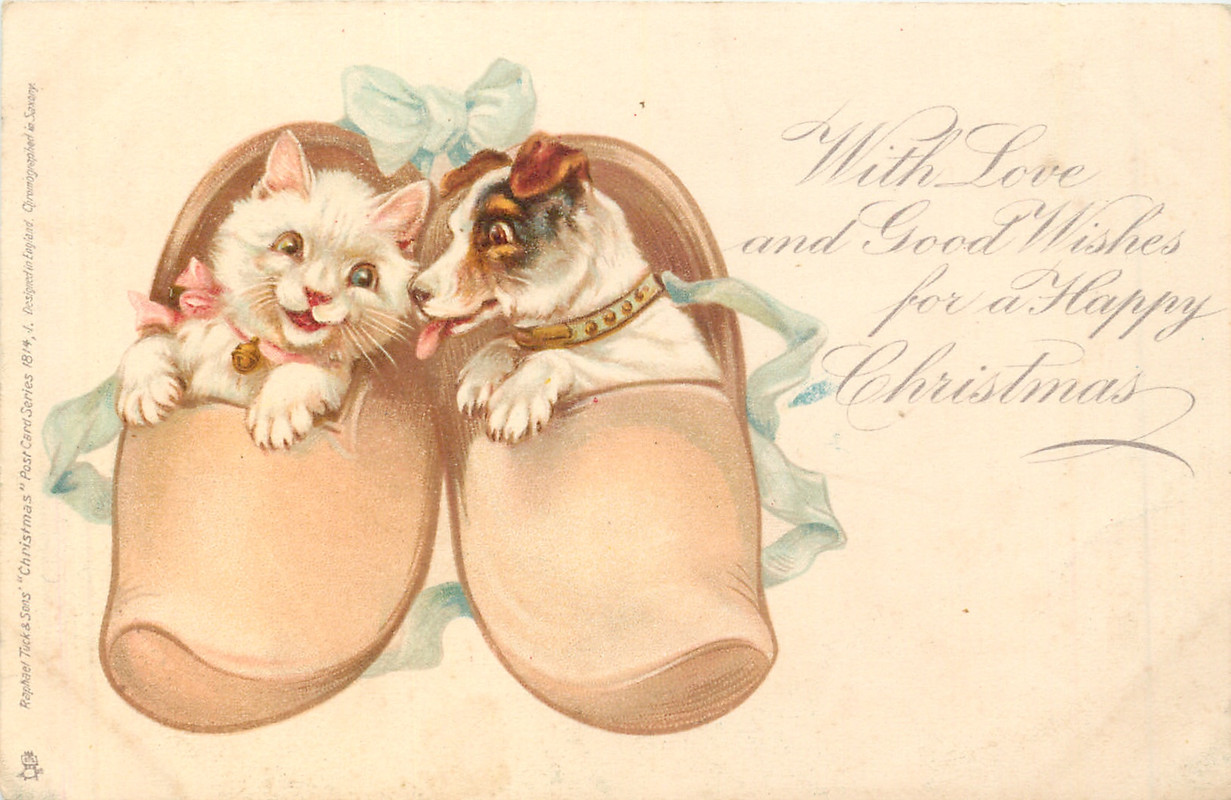 With Love
and Good Wishes
for a Happy
Christmas
Raphael Tuck & Sons' "Christmas" Post Card Series 1814, J. Designed in England, Chromographed in Saxony.